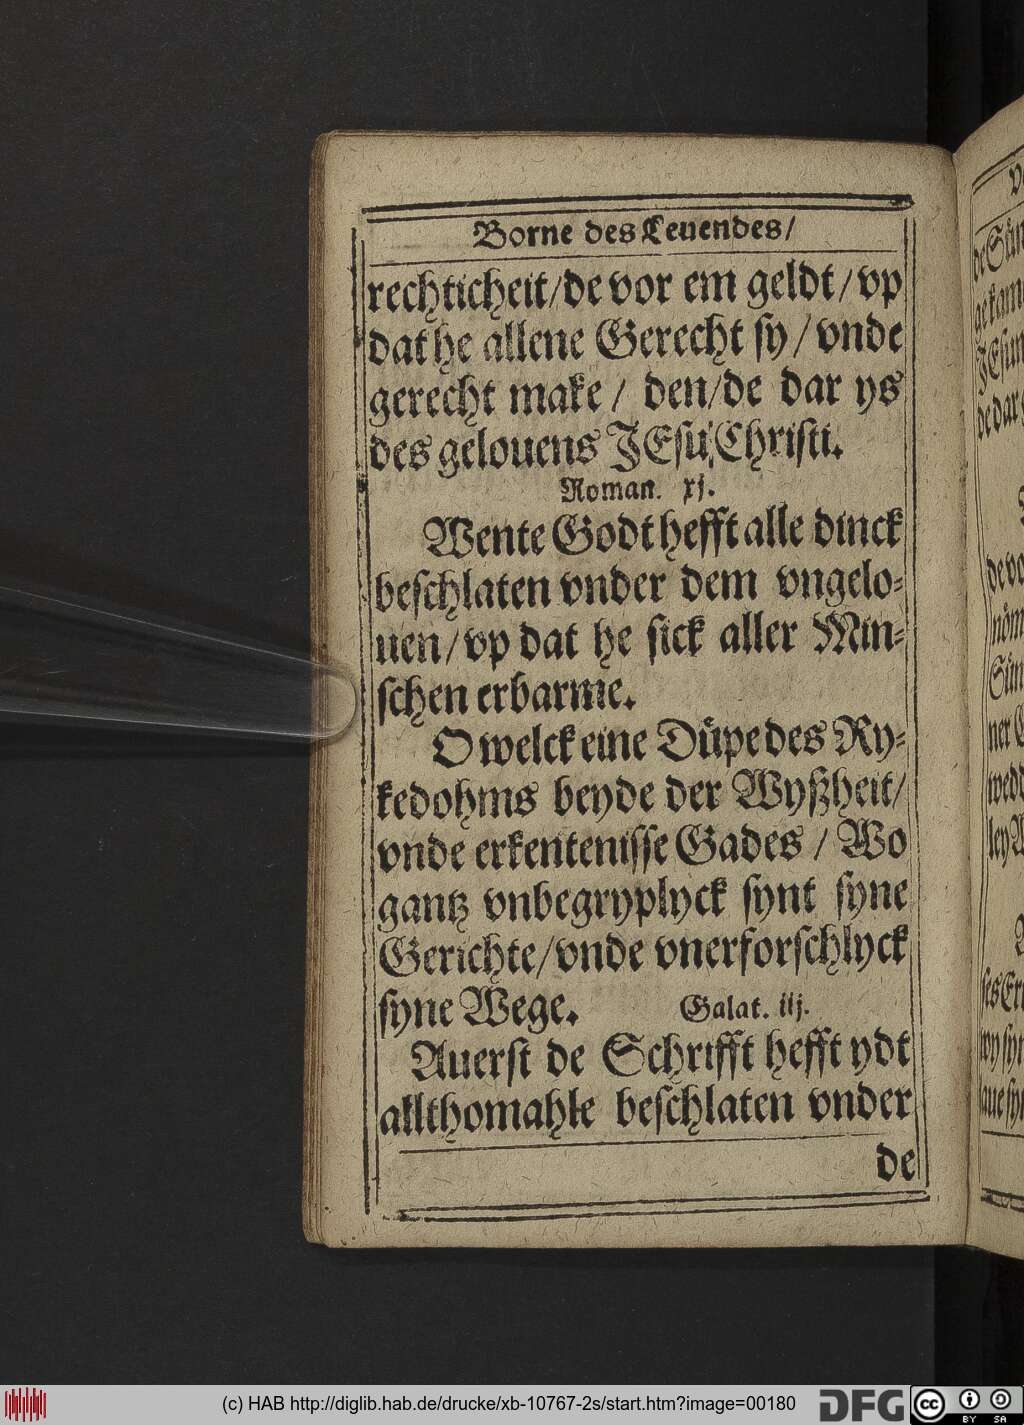 Borne des Leuendes/
rechticheit/de vor em geldt/vp
dat he allene Gerecht sy/vnde
gerecht make/ den/de dar ys
des gelouens JEsu Christi.
Roman. xj.
Wente Godt hefft alle dinck
beschlaten vnder dem vngelo-
uen/vp dat he sick aller Min-
schen erbarme.
O welck eine Düpe des Ry-
kedohms beyde der Wyßheit/
vnde erkentenisse Gades / Wo
gantz vnbegryplyck synt syne
Gerichte/vnde vnerforschlyck
syne Wege. Galat. iij.
Auerst de Schrifft hefft ydt
allthomahle beschlaten vnder
de
(c) HAB http://diglib.hab.de/drucke/xb-10767-2s/start.htm?image=00180
DFG
cc BY SA